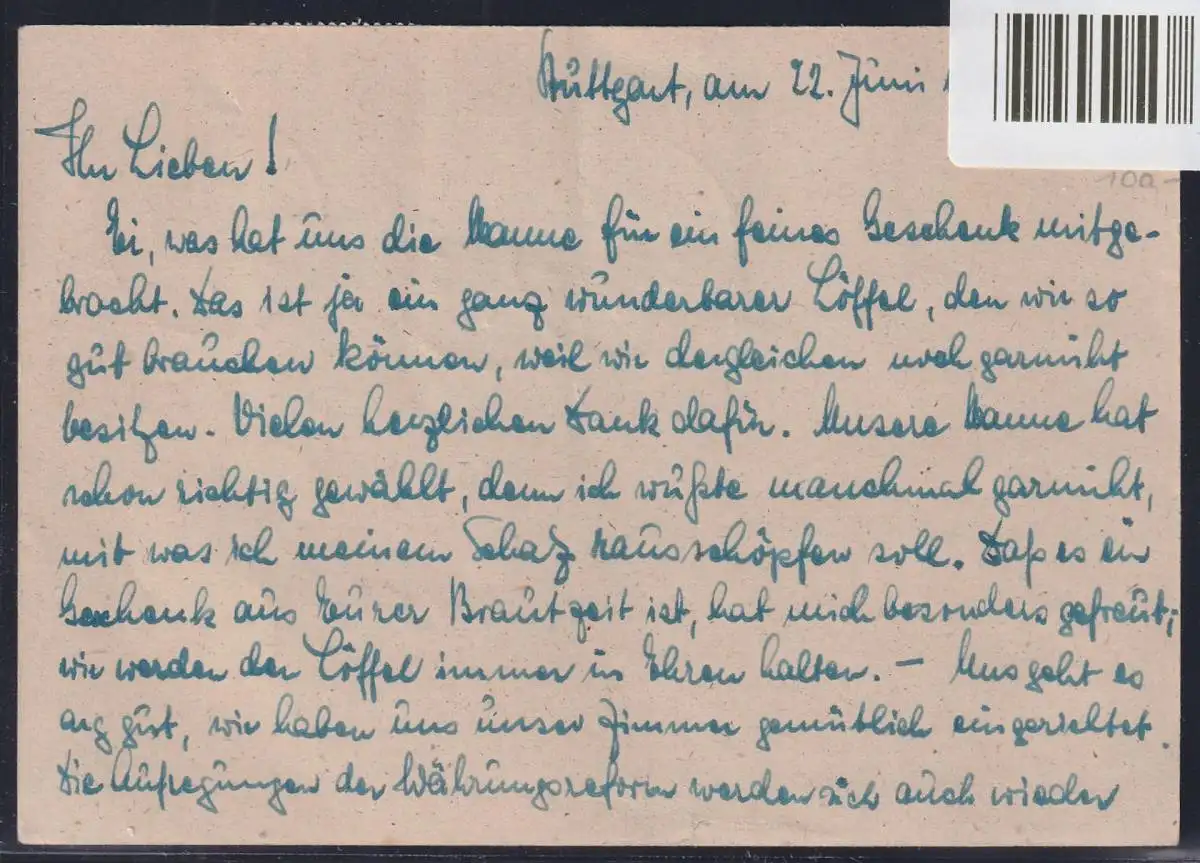 Stuttgart, am 22. Juni
100,-
Ihr Lieben!
Ei, was hat uns die Manne für ein feines Geschenk mitge-
bracht. Das ist ja ein ganz wunderbarer Löffel, den wir so
gut brauchen können, weil wir dergleichen noch garnicht
besitzen. Vielen herzlichen Dank dafür. Unsere Manne hat
schon richtig gewählt, denn ich wußte manchmal garnicht,
mit was ich meinem Schatz rausschöpfen soll. Daß es ein
Geschenk aus Eurer Brautzeit ist, hat mich besonders gefreut;
wir werden den Löffel immer in Ehren halten. – Uns geht es
arg gut, wir haben uns unser Zimmer gemütlich eingerichtet.
Die Aufregungen der Währungsreform werden sich auch wieder